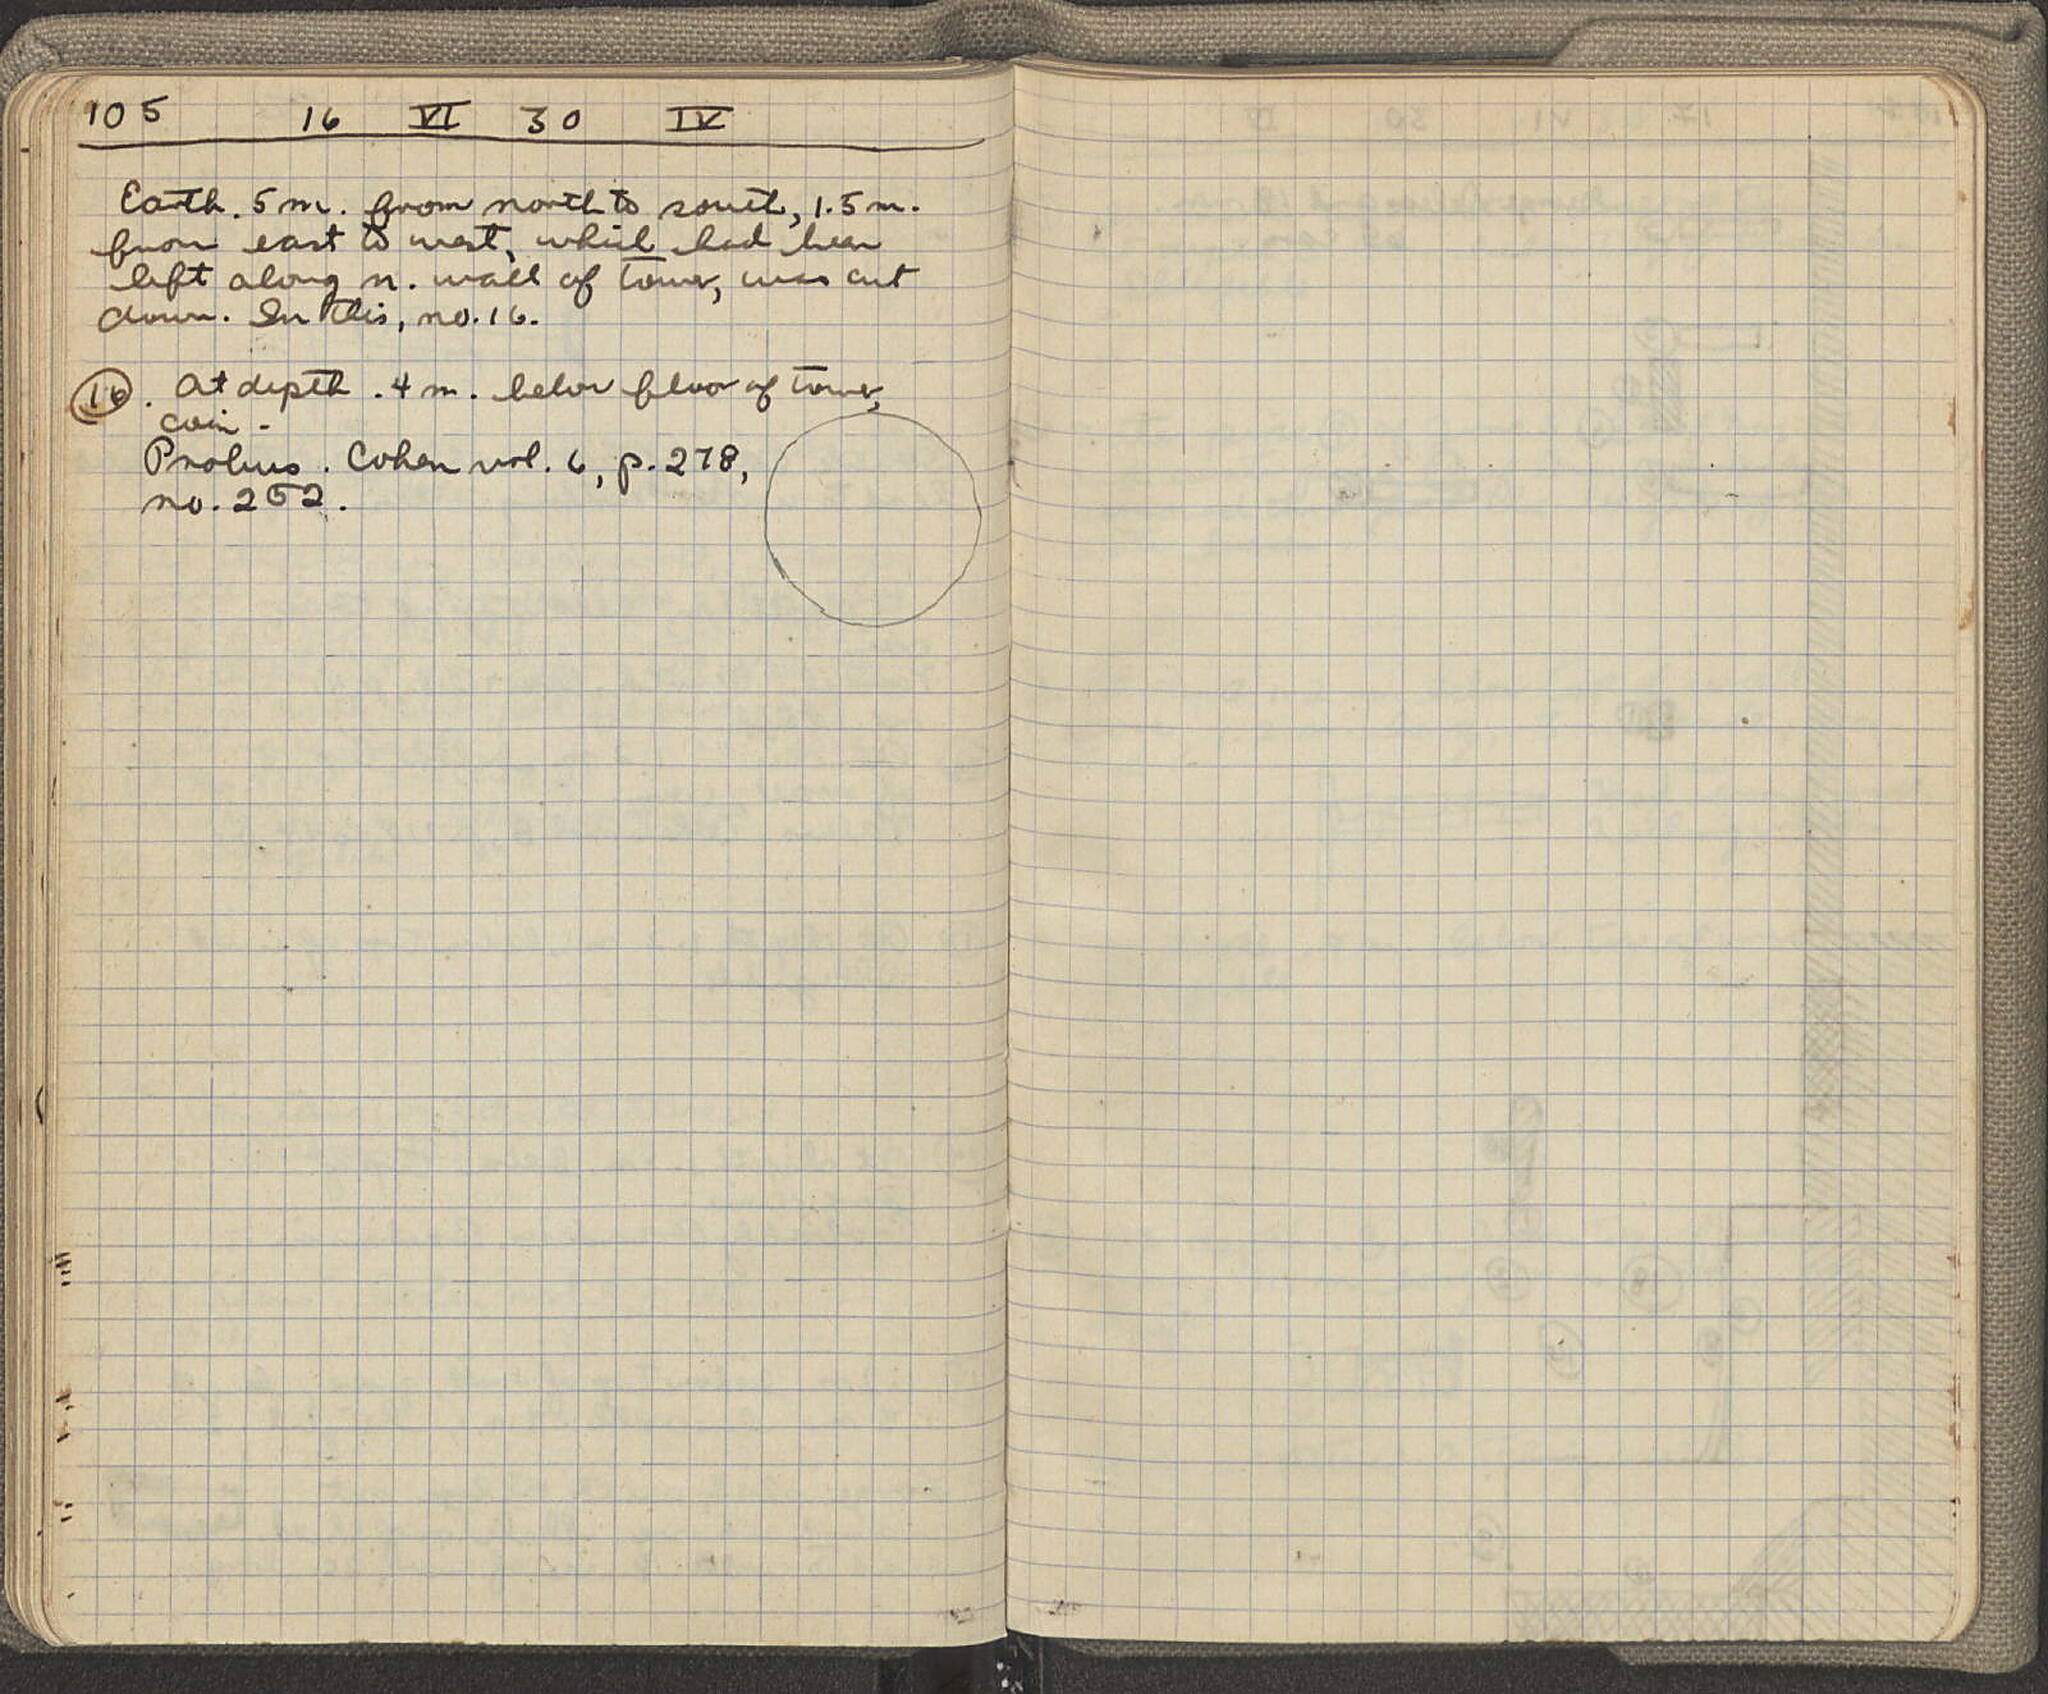 105 16 VI 30 IV
Earth .5 m. from north to south, 1.5 m.
from east to west, which had been
left along n. wall of tower, was cut
down. In this, no. 16.
16. At depth .4 m. below floor of tower,
coin -
Probus. Cohen vol. 6, p. 278,
no. 252.